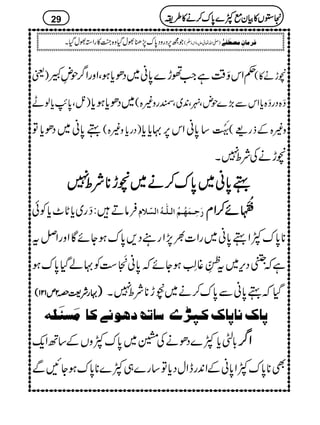 29 نجاستوں کا بیان مع کپڑے پاک کرنے کا طریقہ
فرمانِ مصطفٰے (صلی اللہ تعالیٰ علیہ واٰلہٖ وسلم) جو مجھ پر درود پاک پڑھنا بھول گیا وہ جنت کا راستہ بھول گیا۔
نچوڑنے کا) حکم اس وَقت ہے جب تھوڑے پانی میں دھویا ہو، اور اگر حوضِ کبیر (یعنی
دَہ در دَہ یا اس سے بڑے حوض، نہر، ندی، سمندر وغیرہ) میں دھویا ہو یا (نل، پائپ یا لوٹے
وغیرہ کے ذریعے) بَہُت سا پانی اس پر بہایا یا (دریا وغیرہ) بہتے پانی میں دھویا تو
نچوڑنے کی شرط نہیں۔
بہتے پانی میں پاک کرنے میں نچوڑنا شرط نہیں
فُقَہائے کرام رَحِمَہُمُ اللہُ السَّلام فرماتے ہیں: دَری یا ٹاٹ یا کوئی
ناپاک کپڑا بہتے پانی میں رات بھر پڑا رہنے دیں پاک ہو جائے گا اور اصل یہ
ہے کہ جتنی دیر میں یہ ظنِّ غالِب ہو جائے کہ پانی نَجاست کو بہا لے گیا پاک ہو
گیا کہ بہتے پانی سے پاک کرنے میں نچوڑنا شرط نہیں۔ (بہارِ شریعت حصہ ۲ ص ۱۲۱)
پاک ناپاک کپڑے ساتھ دھونے کا مَسئَلہ
اگر بالٹی یا کپڑے دھونے کی مشین میں پاک کپڑوں کے ساتھ ایک
بھی ناپاک کپڑا پانی کے اندر ڈال دیا تو سارے ہی کپڑے ناپاک ہو جائیں گے